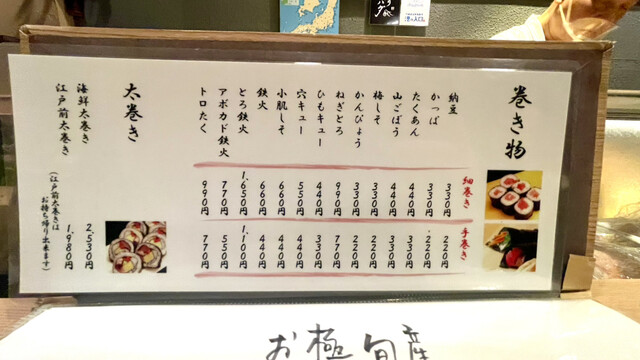 巻き物
細巻き
手巻き
納豆 330円 220円
かっぱ 330円 220円
たくあん 440円 330円
山ごぼう 440円 330円
梅しそ 330円 220円
かんぴょう 330円 220円
ねぎとろ 990円 770円
ひもキュー 440円 330円
穴キュー 550円 440円
小肌しそ 660円 440円
鉄火 660円 440円
とろ鉄火 1,650円 1,100円
アボカド鉄火 770円 550円
トロたく 990円 770円
太巻き
海鮮太巻き 2,530円
江戸前太巻き 1,980円
(江戸前太巻きは
お持ち帰り出来ます)
お極旬産